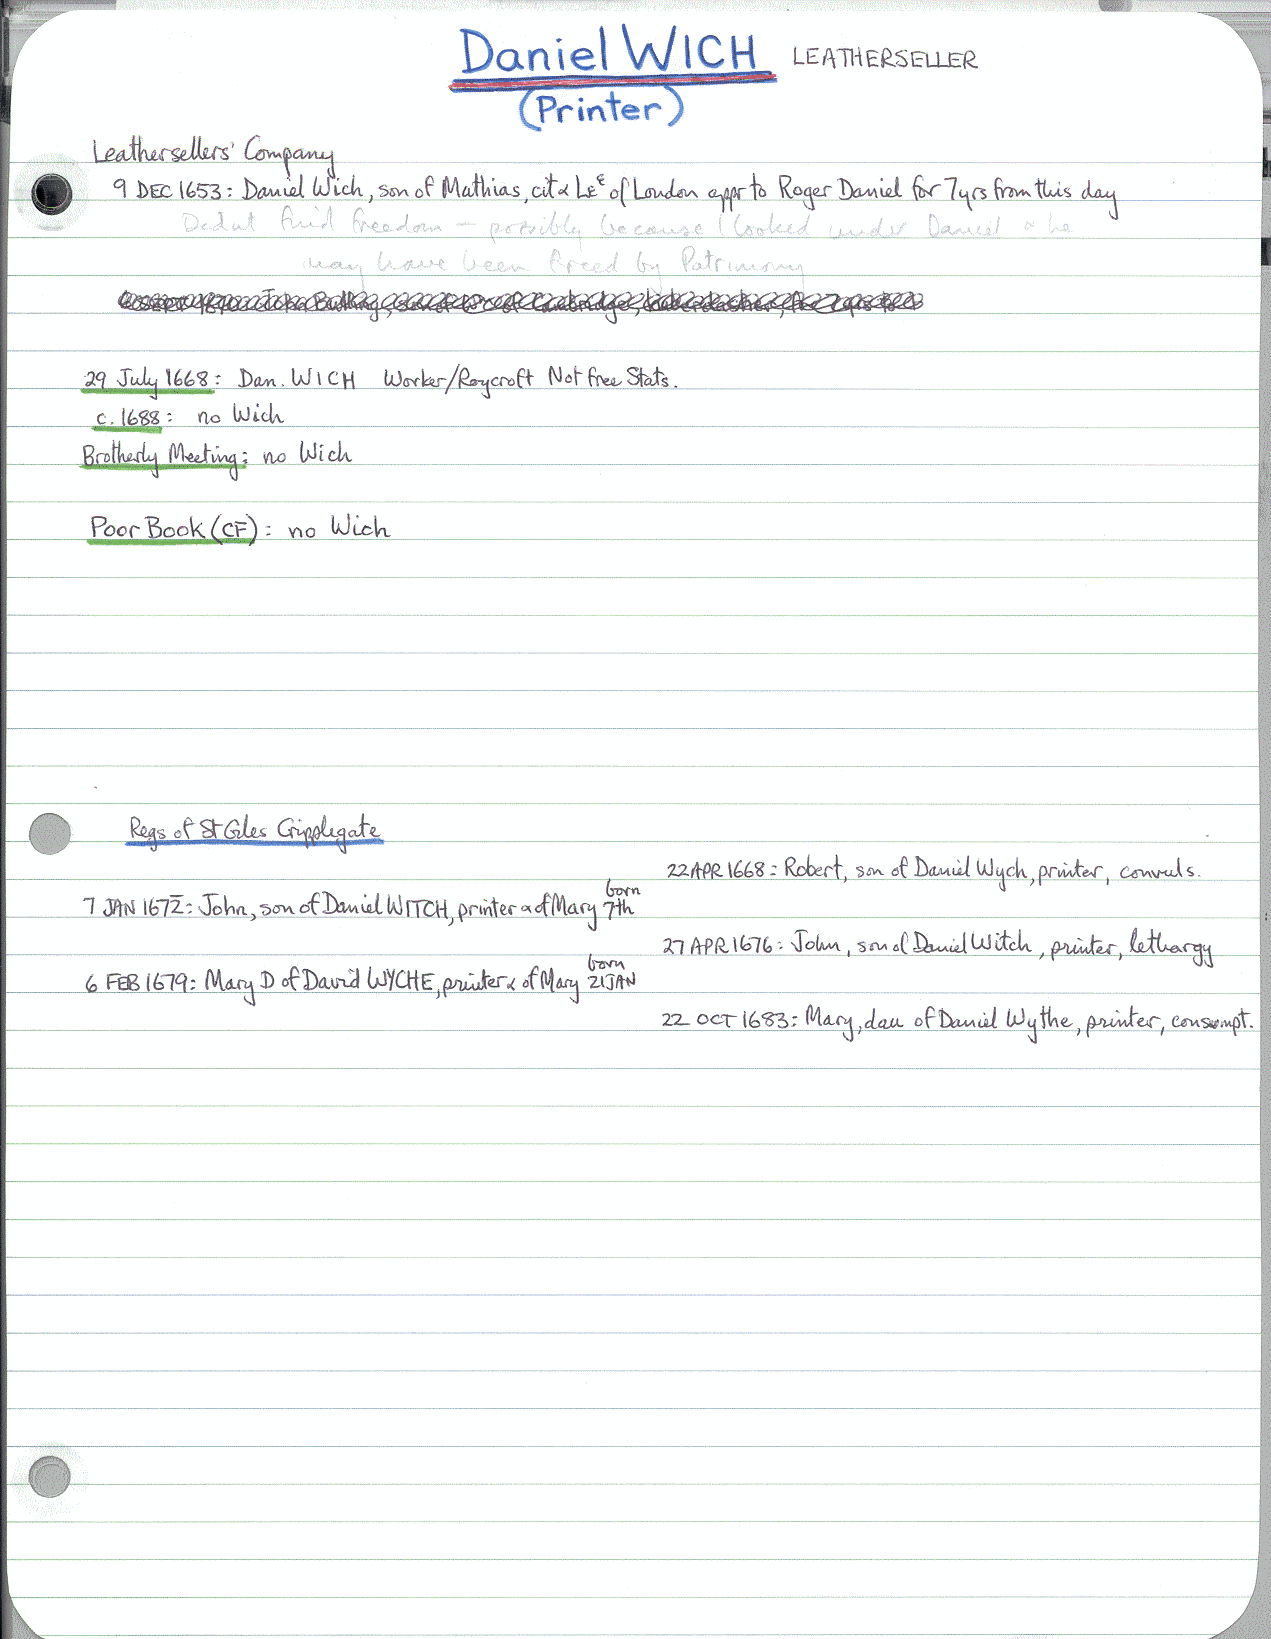 Daniel WICH LEATHERSELLER
(Printer)
Leathersellers' Company
9 DEC 1653: Daniel Wich, son of Mathias, cit & Leᵉ of London appr to Roger Daniel for 7 yrs from this day
Didnt find freedom – possibly because I looked under Daniel & he
may have been freed by Patrimony
29 July 1668: Dan. WICH Worker/Roycroft Not free Stats.
c. 1688: no Wich
Brotherly Meeting: no Wich
Poor Book (CF): no Wich
Regs of St Giles Cripplegate
22 APR 1668: Robert, son of Daniel Wych, printer, convuls.
born
7 JAN 1672: John, son of Daniel WITCH, printer & of Mary 7th
27 APR 1676: John, son of Daniel Witch, printer, lethargy
born
6 FEB 1679: Mary D of David WYCHE, printer & of Mary 21 JAN
22 OCT 1683: Mary, dau of Daniel Wythe, printer, consumpt.